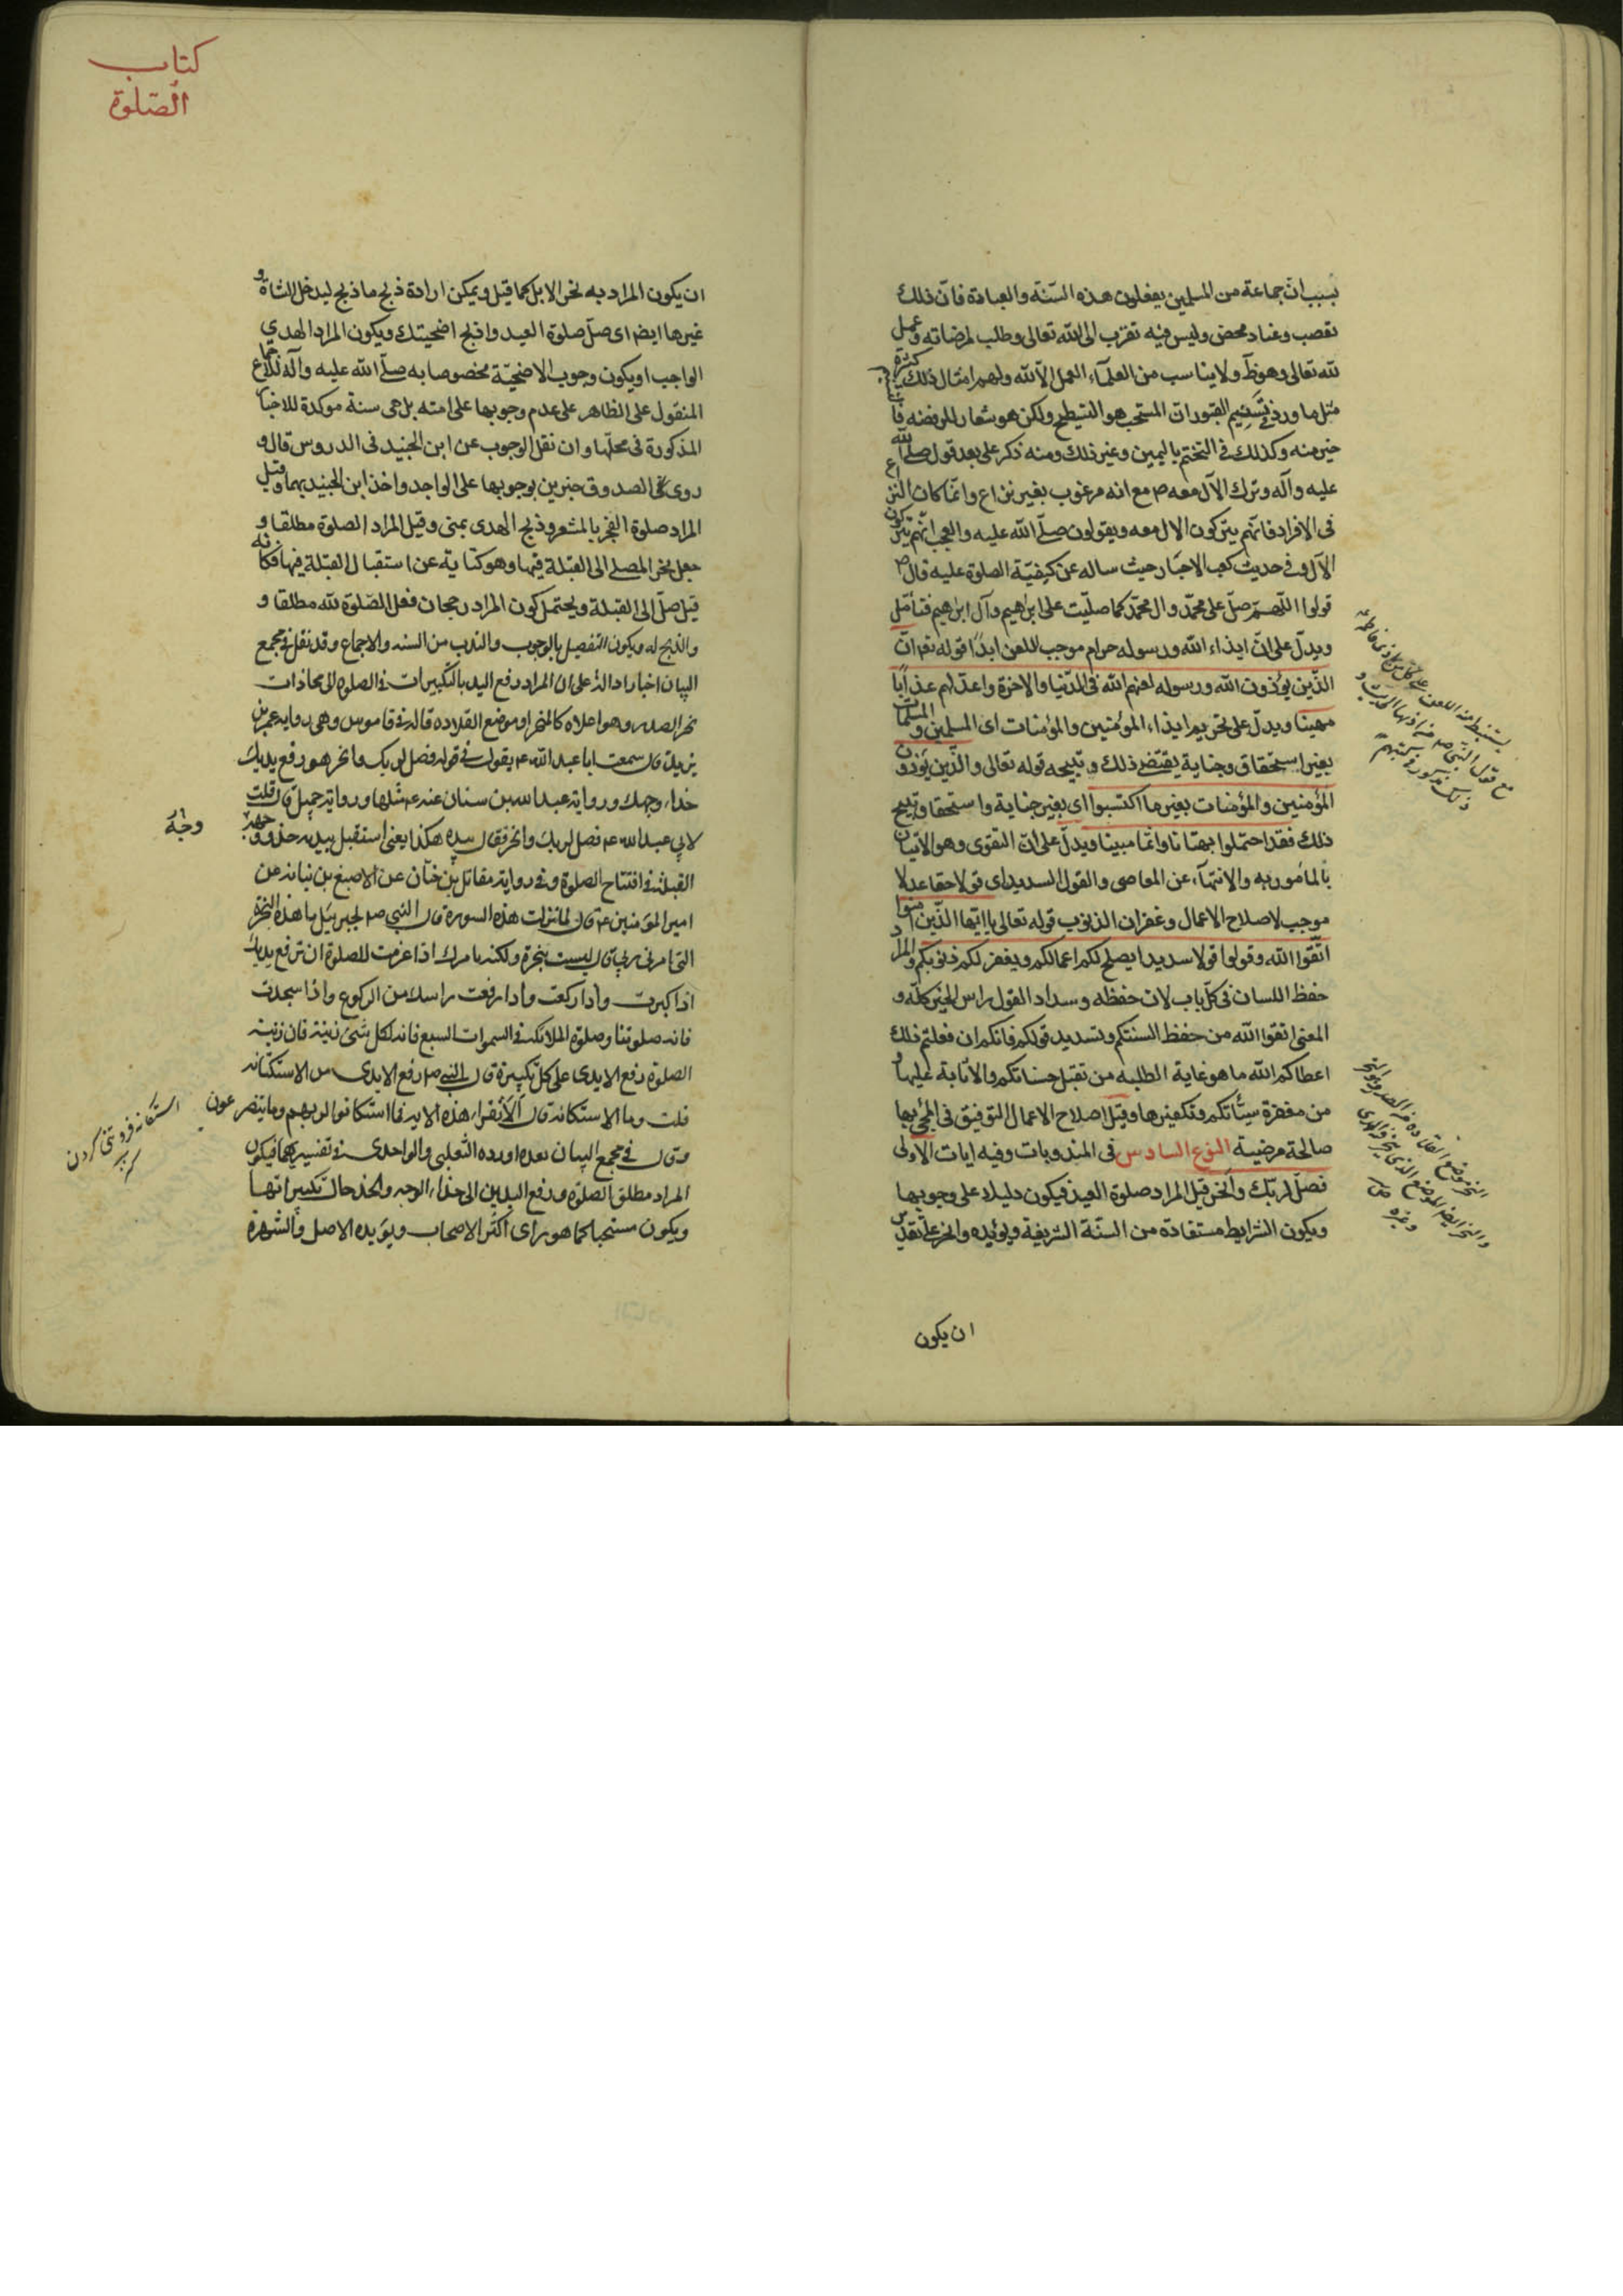 بسبب ان جماعة من المسلمين يفعلون هذه السّنّة والعبادة فانّ ذلك
تعصب وعناد محض وليس فيه تقرّب الى اللّه تعالى وطلب لمرضاته وعمل
للّه تعالى وهو ظ ولا يناسب من العلمآء العمل الّا للّه ولهم امثال ذلك كثيرة
مثل ما ورد في تسنيم القبور ان المستحب هو التسطيح ولكن هو شعار للرفضه فا
خير منه وكذلك في التختم باليمين وغير ذلك ومنه ذكر على بعد قول صلى اللّه
عليه وآله وترك الآل معه ص مع انه مرغوب بغير نزاع وانّما كان النزاع
في الافراد فانّهم يتركون الال معه ويقولون صلّى اللّه عليه والعجب انّهم يتركون
الآل وفي حديث كعب الاحبار حيث ساله عن كيفيّة الصلوة عليه قال ص
قولوا اللّهمّ صلّ على محمّد وال محمّد كما صلّيت على ابراهيم وآل ابراهيم فتأمّل
ويدلّ على انّ ايذاء اللّه ورسوله حرام موجب للعن ابدًا قوله تعم انّ
الّذين يؤذون اللّه ورسوله لعنهم اللّه في الدّنيا والاخرة واعدّ لهم عذابًا
مهينا ويدلّ على تحريم ايذاء المؤمنين والمؤمنات اى المسلمين والمسلمات
بغير استحقاق وجناية يقتضى ذلك وتبيحه قوله تعالى والّذين يؤذون
المؤمنين والمؤمنات بغير ما اكتسبوا اى بغير جناية واستحقاق يبيح
ذلك فقد احتملوا بهتانا واثما مبينا ويدلّ على انّ التقوى وهو الاتيان
بالمأمور به والانتهآء عن المعاصى والقول السديد اى قولا حقا عدلا
موجب لاصلاح الاعمال وغفران الذنوب قوله تعالى يا ايّها الّذين امنوا
اتّقوا اللّه وقولوا قولا سديدا يصلح لكم اعمالكم ويغفر لكم ذنوبكم والمراد
حفظ اللسان في كلّ باب لان حفظه وسداد القول راس الخير كلّه و
المعنى اتقوا اللّه من حفظ السنتكم وتسديد قولكم فانكم ان فعلتم ذلك
اعطاكم اللّه ما هو غاية الطلبه من تقبّل حسناتكم والاثابة عليها و
من مغفرة سيّأتكم وتكفيرها وقيل اصلاح الاعمال التوفيق في المجئ بها
صالحة مرضية النوع السادس في المندوبات وفيه ايات الاولى
فصلّ لربّك وانحر قيل المراد صلوة العيد فيكون دليلا على وجوبها
ويكون الشرايط مستفادة من السنّة الشريفة ويؤيده وانحر على تقدير
ان يكون
يستنبط منه اللعن على كل من اذى فاطمة
مع قول النبي ص من اذاها الحديث و
ذلك مذكور في كتبهم
النحر موضع القلادة من الصدر وهو المنحر
والنحر ايضا الموضع الذي ينحر فيه الهدى
وغيره
كتاب
الصّلوة
ان يكون المراد به نحر الابل كما قيل ويمكن ارادة ذبح ما ذبح ليدخل الشاة و
غيرها ايضا اى صلّ صلوة العيد واذبح اضحيتك ويكون المراد الهدي
الواجب او يكون وجوب الاضحيّة مخصوصا به صلّى اللّه عليه وآله للاجماع
المنقول على الظاهر على عدم وجوبها على امته بل هى سنة موكدة للاخبار
المذكورة في محلّها وان نقل الوجوب عن ابن الجنيد في الدروس قال و
روى الصدوق خبرين بوجوبها على الواجد واخذ ابن الجنيد بهما وقيل
المراد صلوة الفجر بالمشعر وذبح الهدى بمنى وقيل المراد الصلوة مطلقا و
جعل نحر المصلى الى القبلة فيها وهو كناية عن استقبال القبلة فيها فكانه
قيل صلّ الى القبلة ويحتمل كون المراد رجحان فعل الصّلوة للّه مطلقا و
والذبح له ويكون التفصيل بالوجوب والندب من السنه والاجماع وقد نقل في مجمع
البيان اخبارا دالة على ان المراد رفع اليد بالتكبيرات في الصلوة الى محاذات
نحر الصدر وهو اعلاه كالمنحر او موضع القلاده قاله في قاموس وهى رواية عمر بن
يزيد قال سمعت ابا عبد اللّه ع يقول في قوله فصل لربك وانحر هو رفع يديك
حذاء وجهك ورواية عبد اللّه بن سنان عنه ع مثلها ورواية جميل قال قلت
لابي عبد اللّه ع فصل لربك وانحر فقال بيده هكذا يعنى استقبل بيديه حذو وجهه
القبلة في افتتاح الصلوة وفي رواية مقاتل بن حنّان عن الاصبغ بن نباته عن
امير المؤمنين ع قال لما نزلت هذه السورة قال النبي ص لجبرئيل ما هذه النحرة
التى امرنى ربي قال ليست بنحرة ولكنه يامرك اذا عزمت للصلوة ان ترفع يديك
اذا كبرت واذا ركعت واذا رفعت راسك من الركوع واذا سجدت
فانه صلوتنا وصلوة الملائكة في السموات السبع فانه لكل شئ زينة فان زينة
الصلوة رفع الايدى على كلّ تكبيرة قال النبي ص رفع الايدى من الاستكانه
قلت وما الاستكانه قال ألا تقرا هذه الاية فما استكانوا لربهم وما يتضرعون
وقال في مجمع البيان بعده اورده الثعلبى والواحدى في تفسيريهما فيكون
المراد مطلق الصلوة ورفع اليدين الى حذاء الوجه والخد حال تكبيراتها
ويكون مستحبا كما هو راى اكثر الاصحاب ويؤيده الاصل والشهرة
وجه
استكانه فروتنى كردن
كنز